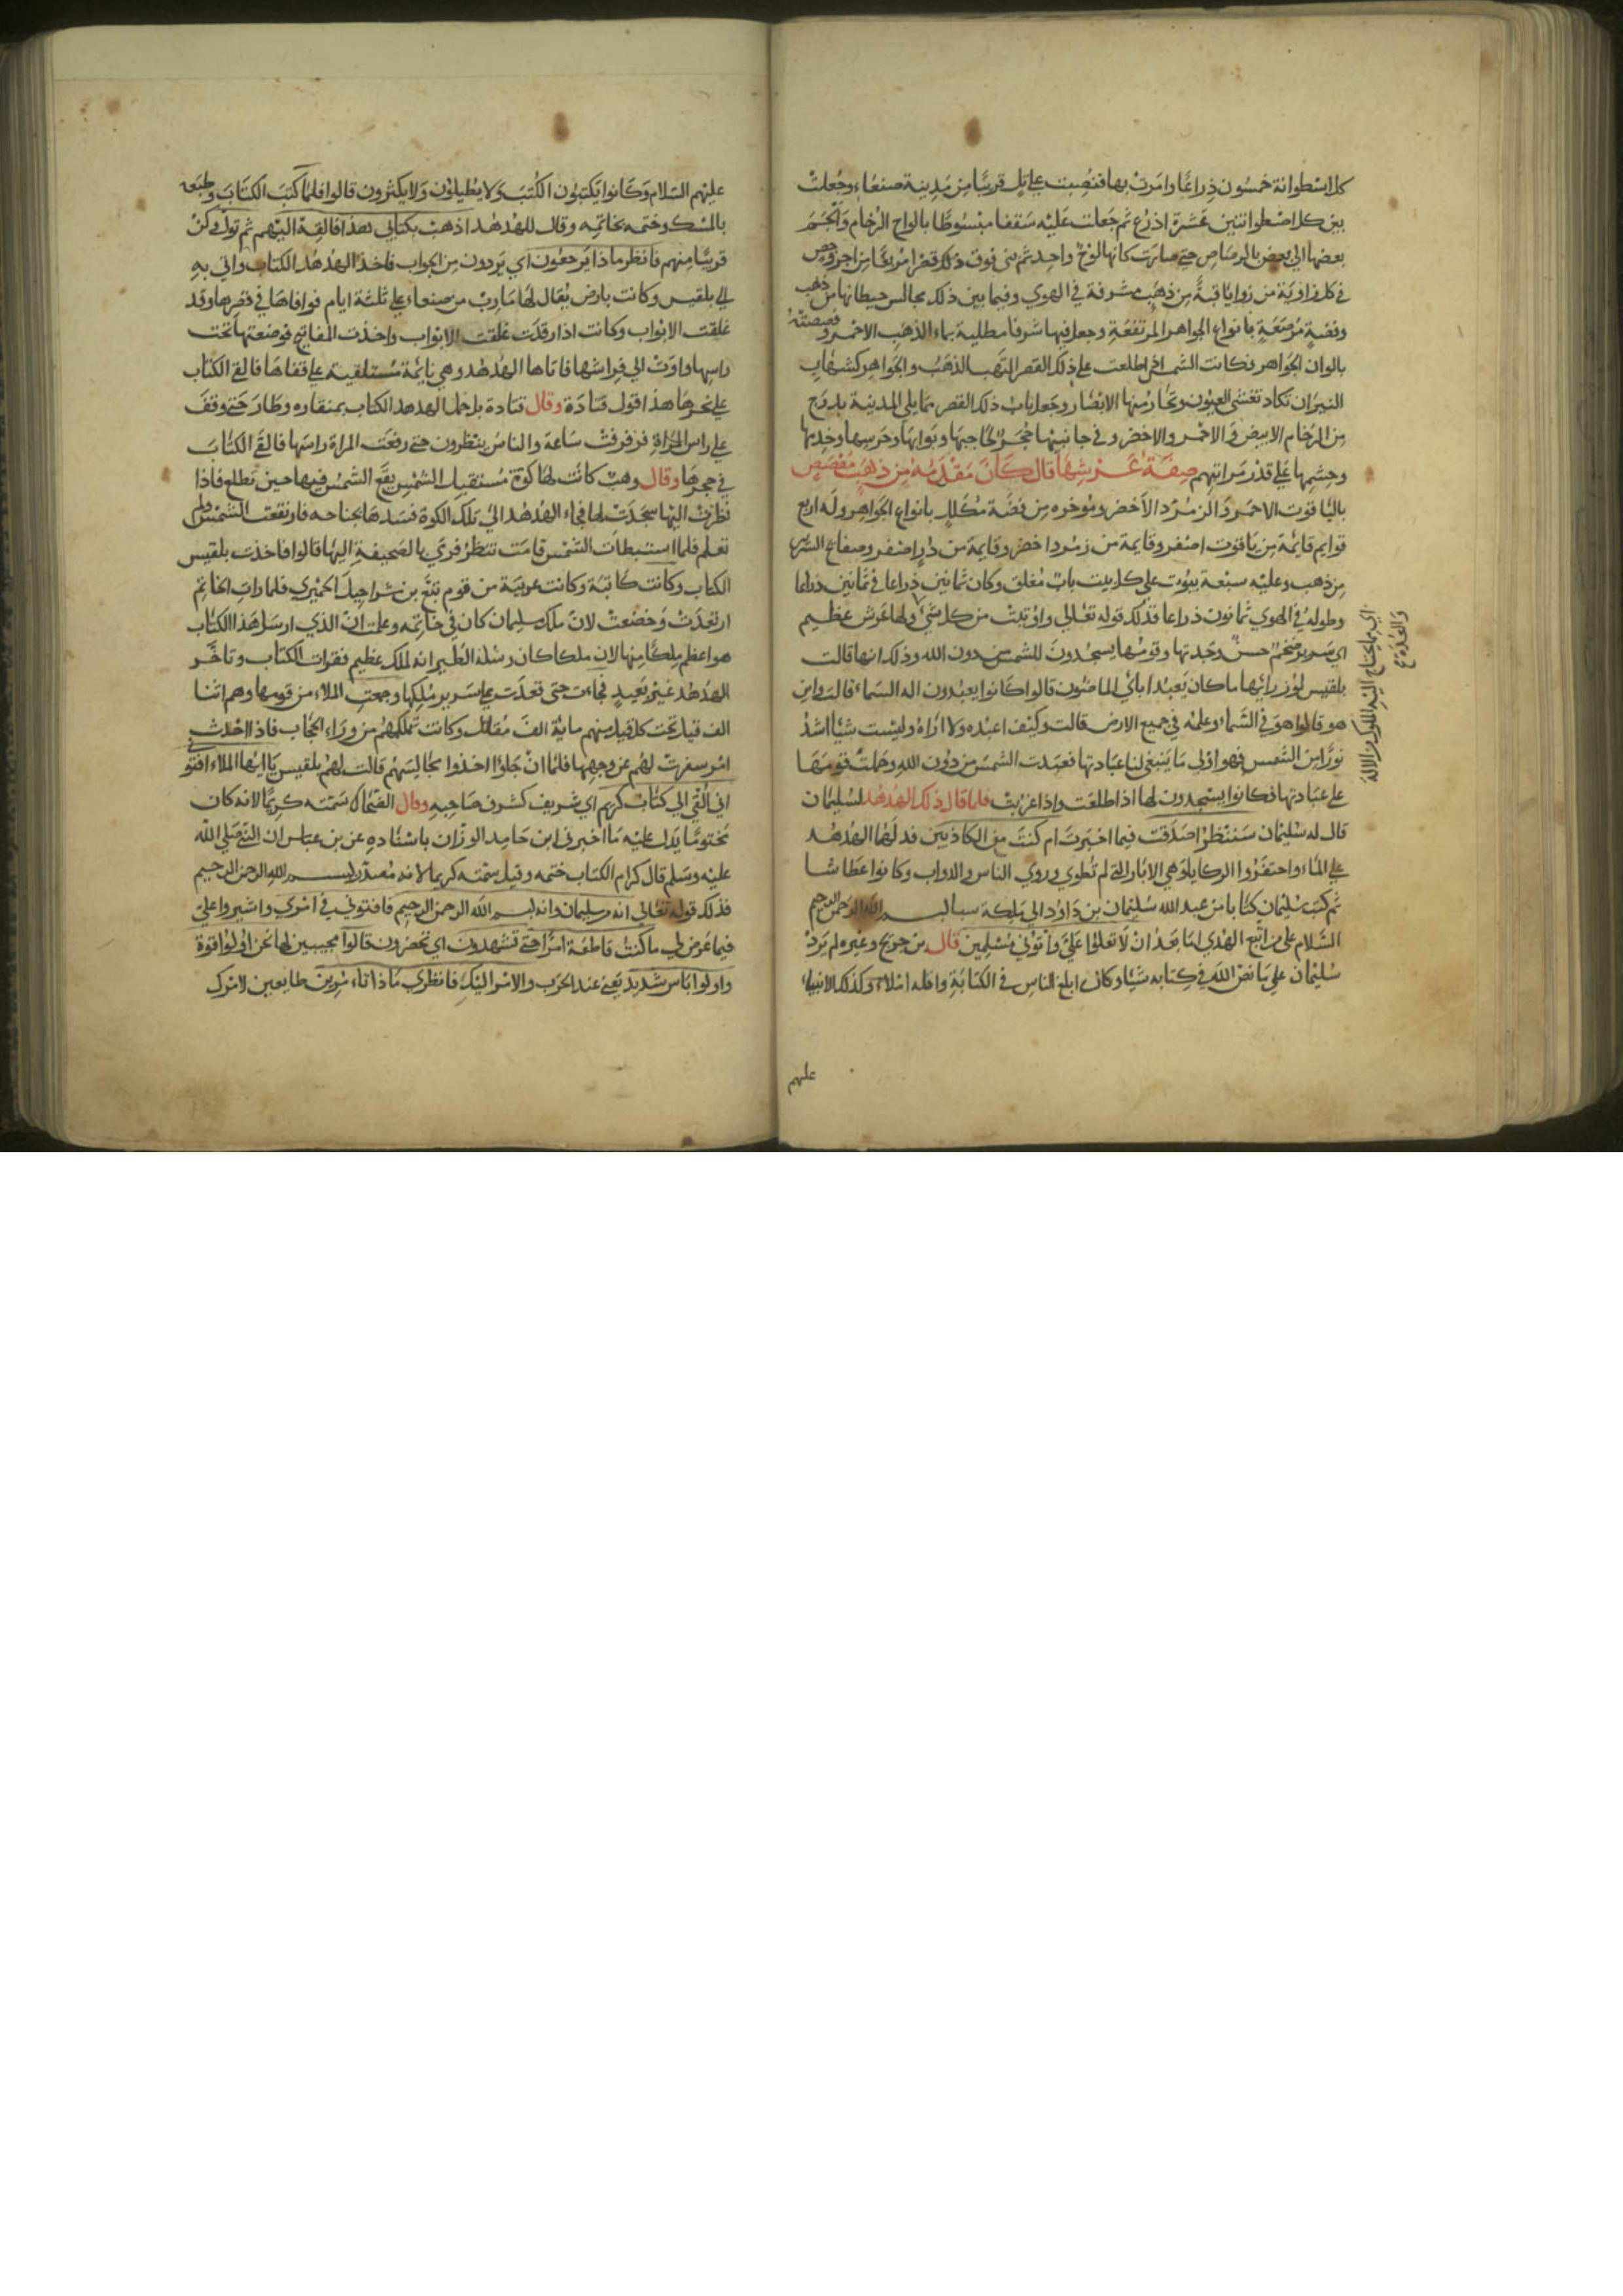 كل اسطوانة خمسون ذراعا وامرت بها فنصبت على تل قريبا من مدينة صنعاء وجعلت
بين كل اصطوانتين عشرة اذرع ثم جعلت عليه سقفا مبسوطا بالواح الرخام والحم
بعضها الى بعض بالرصاص حتى صارت كانها لوح واحد ثم بنى فوق ذلك قصرا مربعا من اجر وجص
في كل زاوية من زواياه قبة من ذهب مشرفة في الهوى وفيما بين ذلك مجالس حيطانها من ذهب
وفضة مرصعة بانواع الجواهر المرتفعة وجعل فيها شرفا مطلية بماء الذهب الاحمر وفصصته
بالوان الجواهر فكانت الشمس اذا طلعت على ذلك القصر التهب الذهب والجواهر كشهاب
النيران تكاد تغشى العيون وتحار منها الابصار وجعل باب ذلك القصر مما يلي المدينة بدرج
من الرخام الابيض والاحمر والاخضر وفي جانبيها حجر لحاجبها وبوابها وحرسها وخدمها
وحشمها على قدر مراتبهم صفة عرشها قال كان مقدمه من ذهب مفصص
بالياقوت الاحمر والزمرد الاخضر وموخره من فضة مكلل بانواع الجواهر وله اربع
قوايم قايمة من ياقوت اصفر وقايمة من زمرد اخضر وقايمة من در اصفر وصفايح السرير
من ذهب وعليه سبعة بيوت على كل بيت باب مغلق وكان ثمانين ذراعا في ثمانين ذراعا
وطوله في الهوى ثمانون ذراعا فذلك قوله تعالى واوتيت من كل شي ولها عرش عظيم
اي سرير ضخم حسن وجدتها وقومها يسجدون للشمس من دون الله وذلك انها قالت
بلقيس لوزرايها ما كان يعبد ابائي الماضون قالوا كانوا يعبدون اله السماء قالت واين
هو قالوا هو في السماء وعلمه في جميع الارض قالت وكيف اعبده ولا اراه وليست شيا اشد
نورا من الشمس فهو اولى ما ينبغي لنا عبادتها فعبدت الشمس من دون الله وحملت قومها
على عبادتها فكانوا يسجدون لها اذا طلعت واذا غربت فلما قال ذلك الهدهد لسليمان
قال له سليمان سننظر اصدقت فيما اخبرت ام كنت من الكاذبين فدلهما الهدهد
على الماء واحتفروا الركايا وهي الابار التي لم تطوى وروى الناس والدواب وكانوا عطاشا
ثم كتب سليمان كتابا من عبد الله سليمان بن داود الى ملكة سبا بسم الله الرحمن الرحيم
السلام على من اتبع الهدى اما بعد ان لا تعلوا علي واتوني مسلمين قال بن جريج وغيره لم يزد
سليمان على ما نص الله في كتابه شيا وكان ابلغ الناس في الكتابة واقله املاء وكذلك الانبياء
عليهم
اي مما يحتاج اليه الملوك من الالة
والعدة
عليهم السلام وكانوا يكتبون الكتب ولا يطيلون ولا يكثرون قالوا فلما كتب الكتاب وطبعه
بالمسك وختمه بخاتمه وقال للهدهد اذهب بكتابي هذا فالقه اليهم ثم تول وكن
قريبا منهم فانظر ماذا يرجعون اي يردون من الجواب فاخذ الهدهد الكتاب واتي به
الى بلقيس وكانت بارض يقال لها مارب من صنعاء على ثلثة ايام فوافاها في قصرها وقد
غلقت الابواب وكانت اذا رقدت غلقت الابواب واخذت المفاتيح فوضعتها تحت
راسها واوت الى فراشها فاتاها الهدهد وهي نائمة مستلقية على قفاها فالقى الكتاب
على نحرها هذا قول قتادة وقال قتادة بل حمل الهدهد الكتاب بمنقاره وطار حتى وقف
على راس المراة فرفرفت ساعة والناس ينظرون حتى رفعت المراة راسها فالقى الكتاب
في حجرها وقال وهب كانت لها كوة مستقبل الشمس يقع الشمس فيها حين تطلع فاذا
نظرت اليها سجدت لها فجاء الهدهد الى تلك الكوة فسدها بجناحه فارتفعت الشمس ولم
تعلم فلما استبطات الشمس قامت تنظر فرمى بالصحيفة اليها قالوا فاخذت بلقيس
الكتاب وكانت كاتبة وكانت عربية من قوم تبع بن شراحيل الحميري فلما رات الخاتم
ارتعدت وخضعت لان ملك سليمان كان في خاتمه وعلمت ان الذي ارسل هذا الكتاب
هو اعظم ملكا منها لان ملكا كان رسله الطير انه لملك عظيم فقرات الكتاب وتاخر
الهدهد غير بعيد فجاءت حتى قعدت على سرير ملكها وجمعت الملاء من قومها وهم اثنا
الف قيل تحت كل قيل منهم ماية الف مقاتل وكانت تملكهم من وراء الحجاب فاذا حدث في
امر سفرت لهم عن وجهها فلما ان جاوا اخذوا مجالسهم قالت لهم بلقيس يا ايها الملاء افتو
اني القي الي كتاب كريم اي شريف كشرف صاحبه وقال الضحاك سمته كريما لانه كان
مختوما يدل عليه ما اخبرني ابن حامد الوزان باسناده عن بن عباس ان النبي صلى الله
عليه وسلم قال كرام الكتاب ختمه وقيل سمته كريما لانه مصدر بسم الله الرحمن الرحيم
فذلك قوله تعالى انه من سليمان وانه بسم الله الرحمن الرحيم فافتوني في امري واشيروا علي
فيما عرض لي ما كنت قاطعة امرا حتى تشهدون اي تحضرون قالوا مجيبين لها نحن اولوا قوة
واولوا باس شديد يعني عند الحرب والامر اليك فانظري ماذا تامرين طايعين لامرك